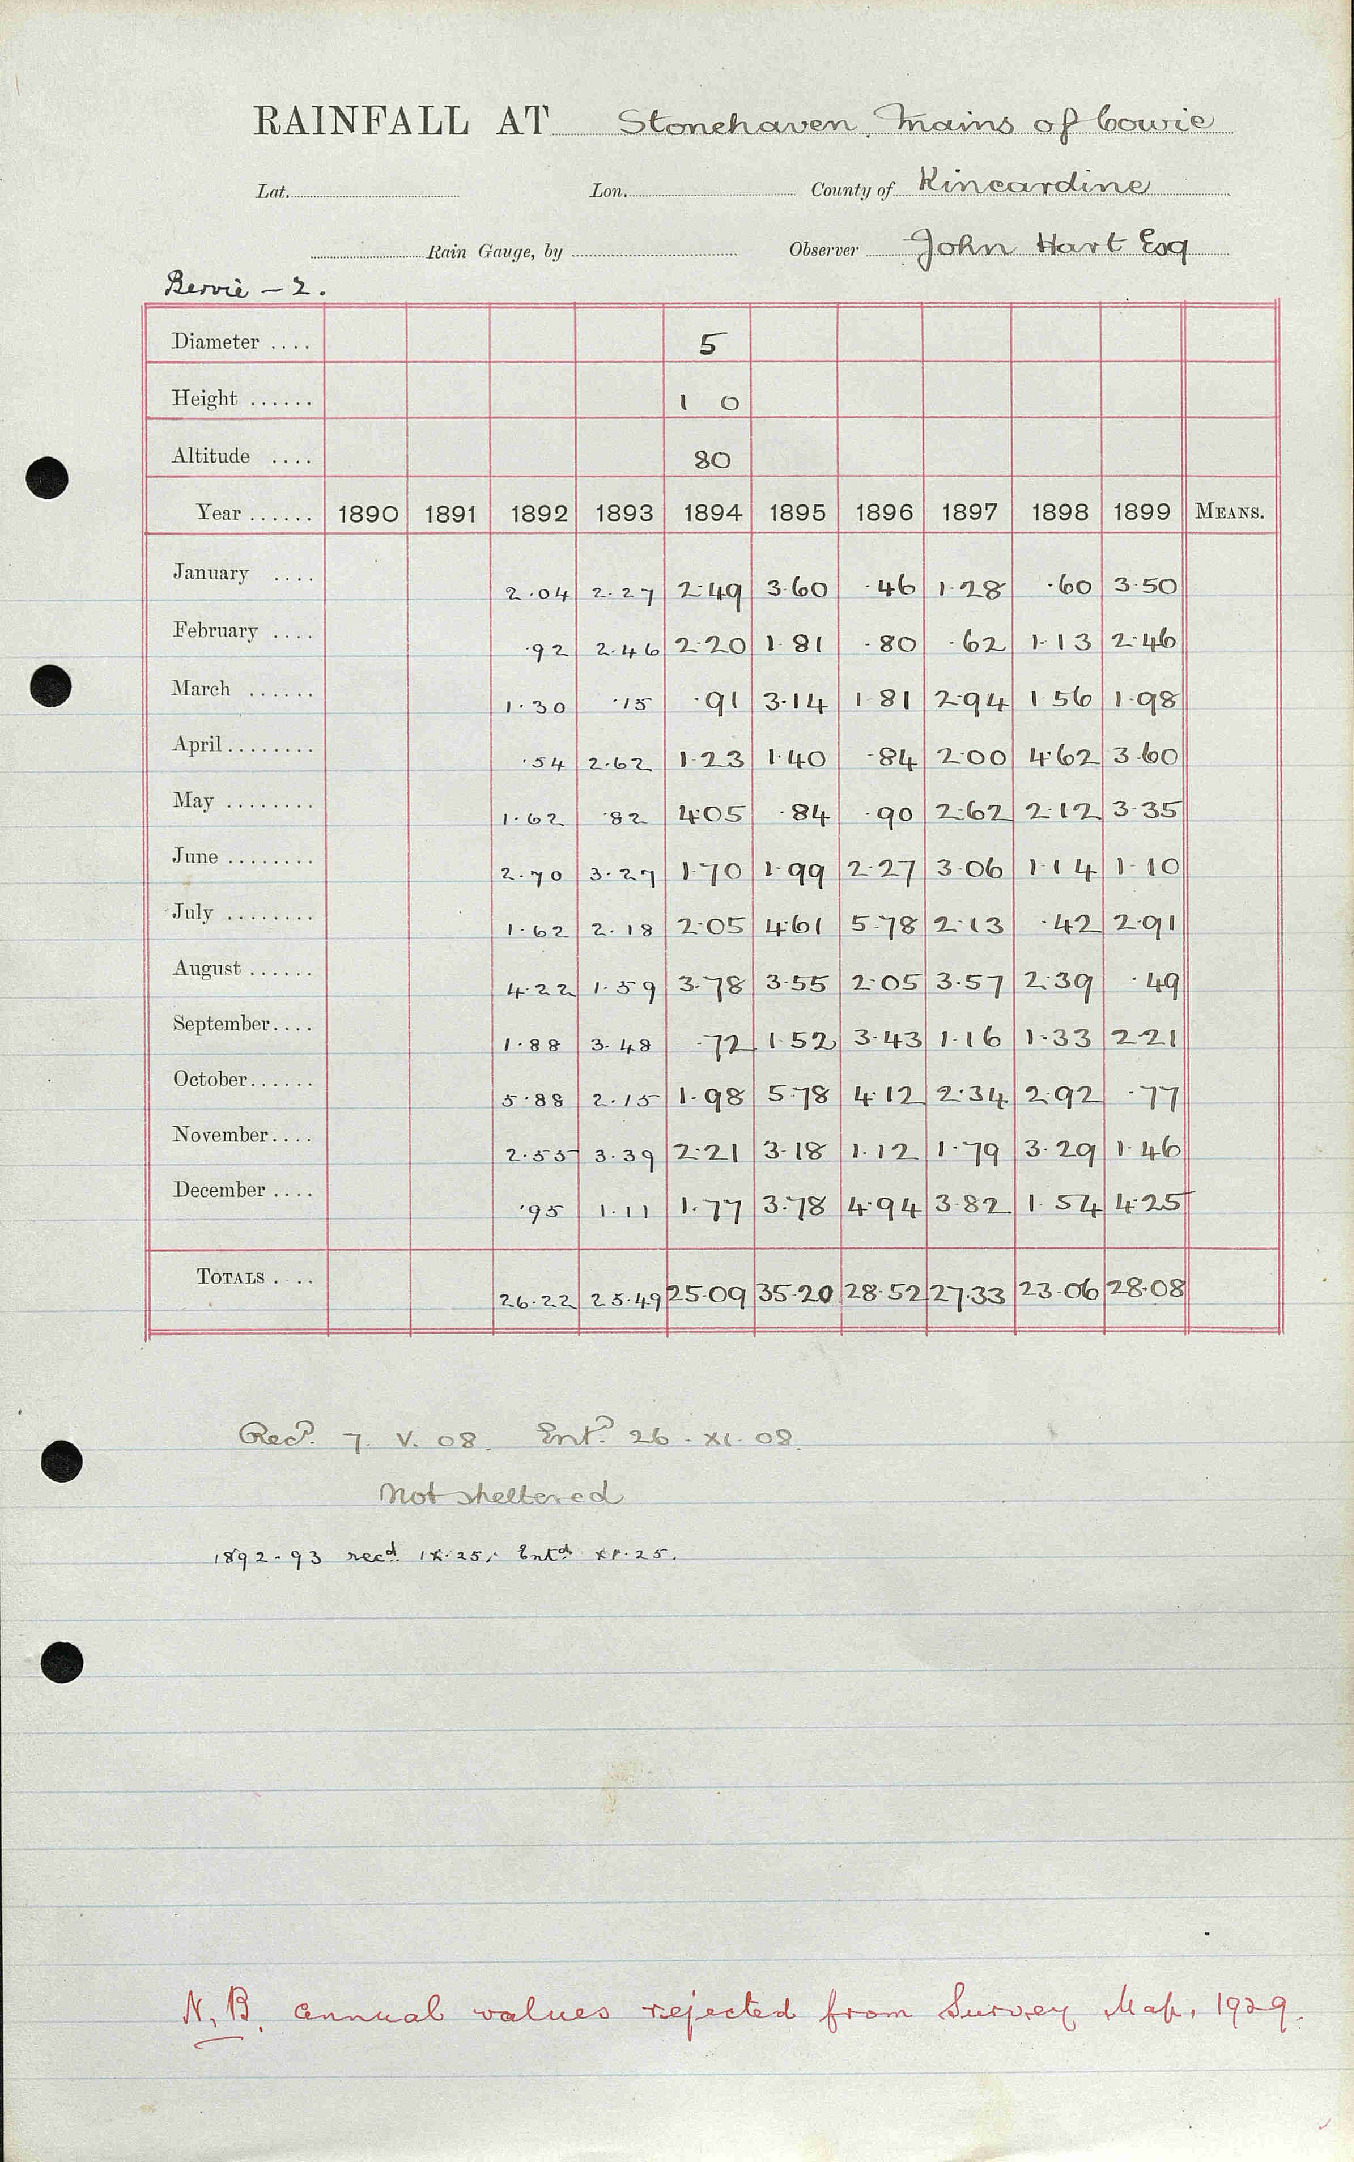 RAINFALL AT Stonehaven, Mains of Cowie
Lat. Lon. County of Kincardine
Rain Gauge, by Observer John Hart Esq
Bervie - 2.
Diameter .... 5
Height ...... 1 0
Altitude .... 80
Year ...... 1890 1891 1892 1893 1894 1895 1896 1897 1898 1899 MEANS.
January .... 2.04 2.27 2.49 3.60 .46 1.28 .60 3.50
February .... .92 2.46 2.20 1.81 .80 .62 1.13 2.46
March ...... 1.30 .15 .91 3.14 1.81 2.94 1.56 1.98
April ........ .54 2.62 1.23 1.40 .84 2.00 4.62 3.60
May ........ 1.62 .82 4.05 .84 .90 2.62 2.12 3.35
June ........ 2.70 3.27 1.70 1.99 2.27 3.06 1.14 1.10
July ........ 1.62 2.18 2.05 4.61 5.78 2.13 .42 2.91
August ...... 4.22 1.59 3.78 3.55 2.05 3.57 2.39 .49
September.... 1.88 3.48 .72 1.52 3.43 1.16 1.33 2.21
October...... 5.88 2.15 1.98 5.78 4.12 2.34 2.92 .77
November.... 2.55 3.39 2.21 3.18 1.12 1.79 3.29 1.46
December .... .95 1.11 1.77 3.78 4.94 3.82 1.54 4.25
TOTALS .... 26.22 25.49 25.09 35.20 28.52 27.33 23.06 28.08
Recd. 7. V. 08. Entd. 26. XI. 08.
Not sheltered
1892-93 recd. IX.25. Entd. XI.25.
N.B. Annual values rejected from Survey Map, 1929.